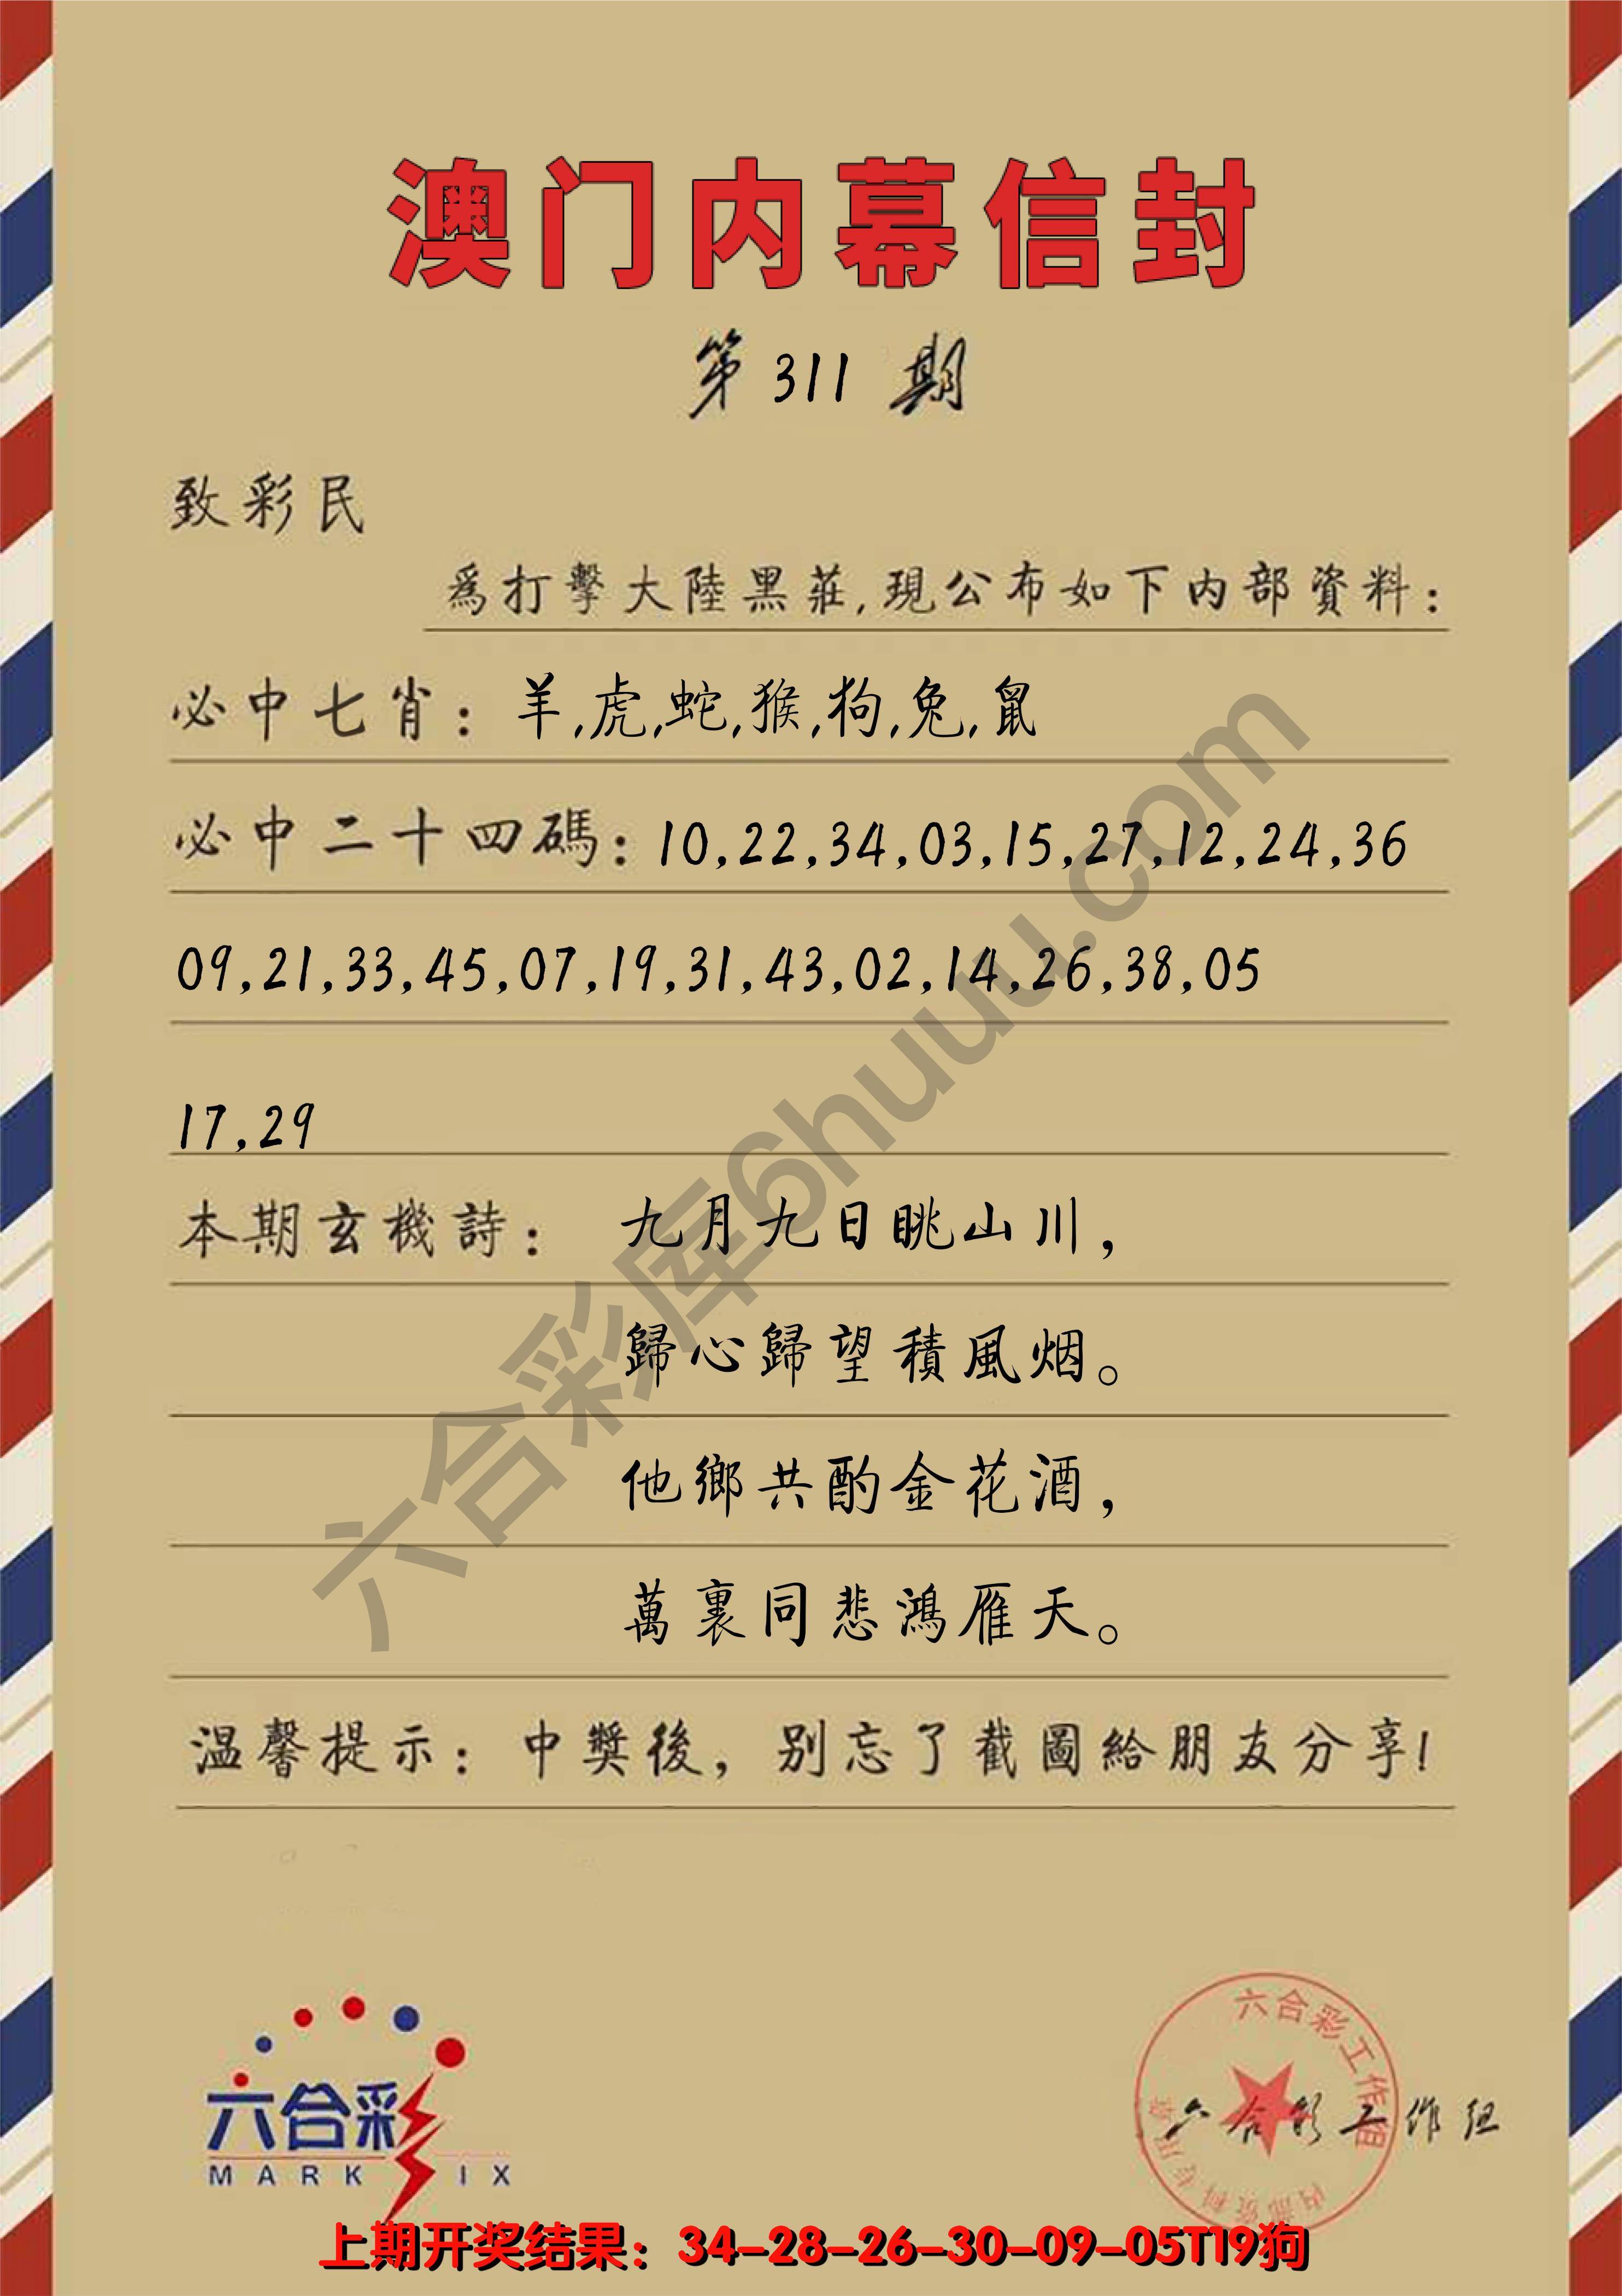 澳门内幕信封
第 311 期
致彩民
爲打擊大陸黑莊,現公布如下内部資料:
必中七肖: 羊,虎,蛇,猴,狗,兔,鼠
必中二十四碼: 10,22,34,03,15,27,12,24,36
09,21,33,45,07,19,31,43,02,14,26,38,05
17,29
本期玄機詩: 九月九日眺山川,
歸心歸望積風烟。
他鄉共酌金花酒,
萬裏同悲鴻雁天。
温馨提示: 中獎後, 别忘了截圖給朋友分享!
六合彩库6huuu.com
六合彩
MARK IX
六合彩工作组
内部资料专用章
六合彩工作组
上期开奖结果: 34-28-26-30-09-05T19狗